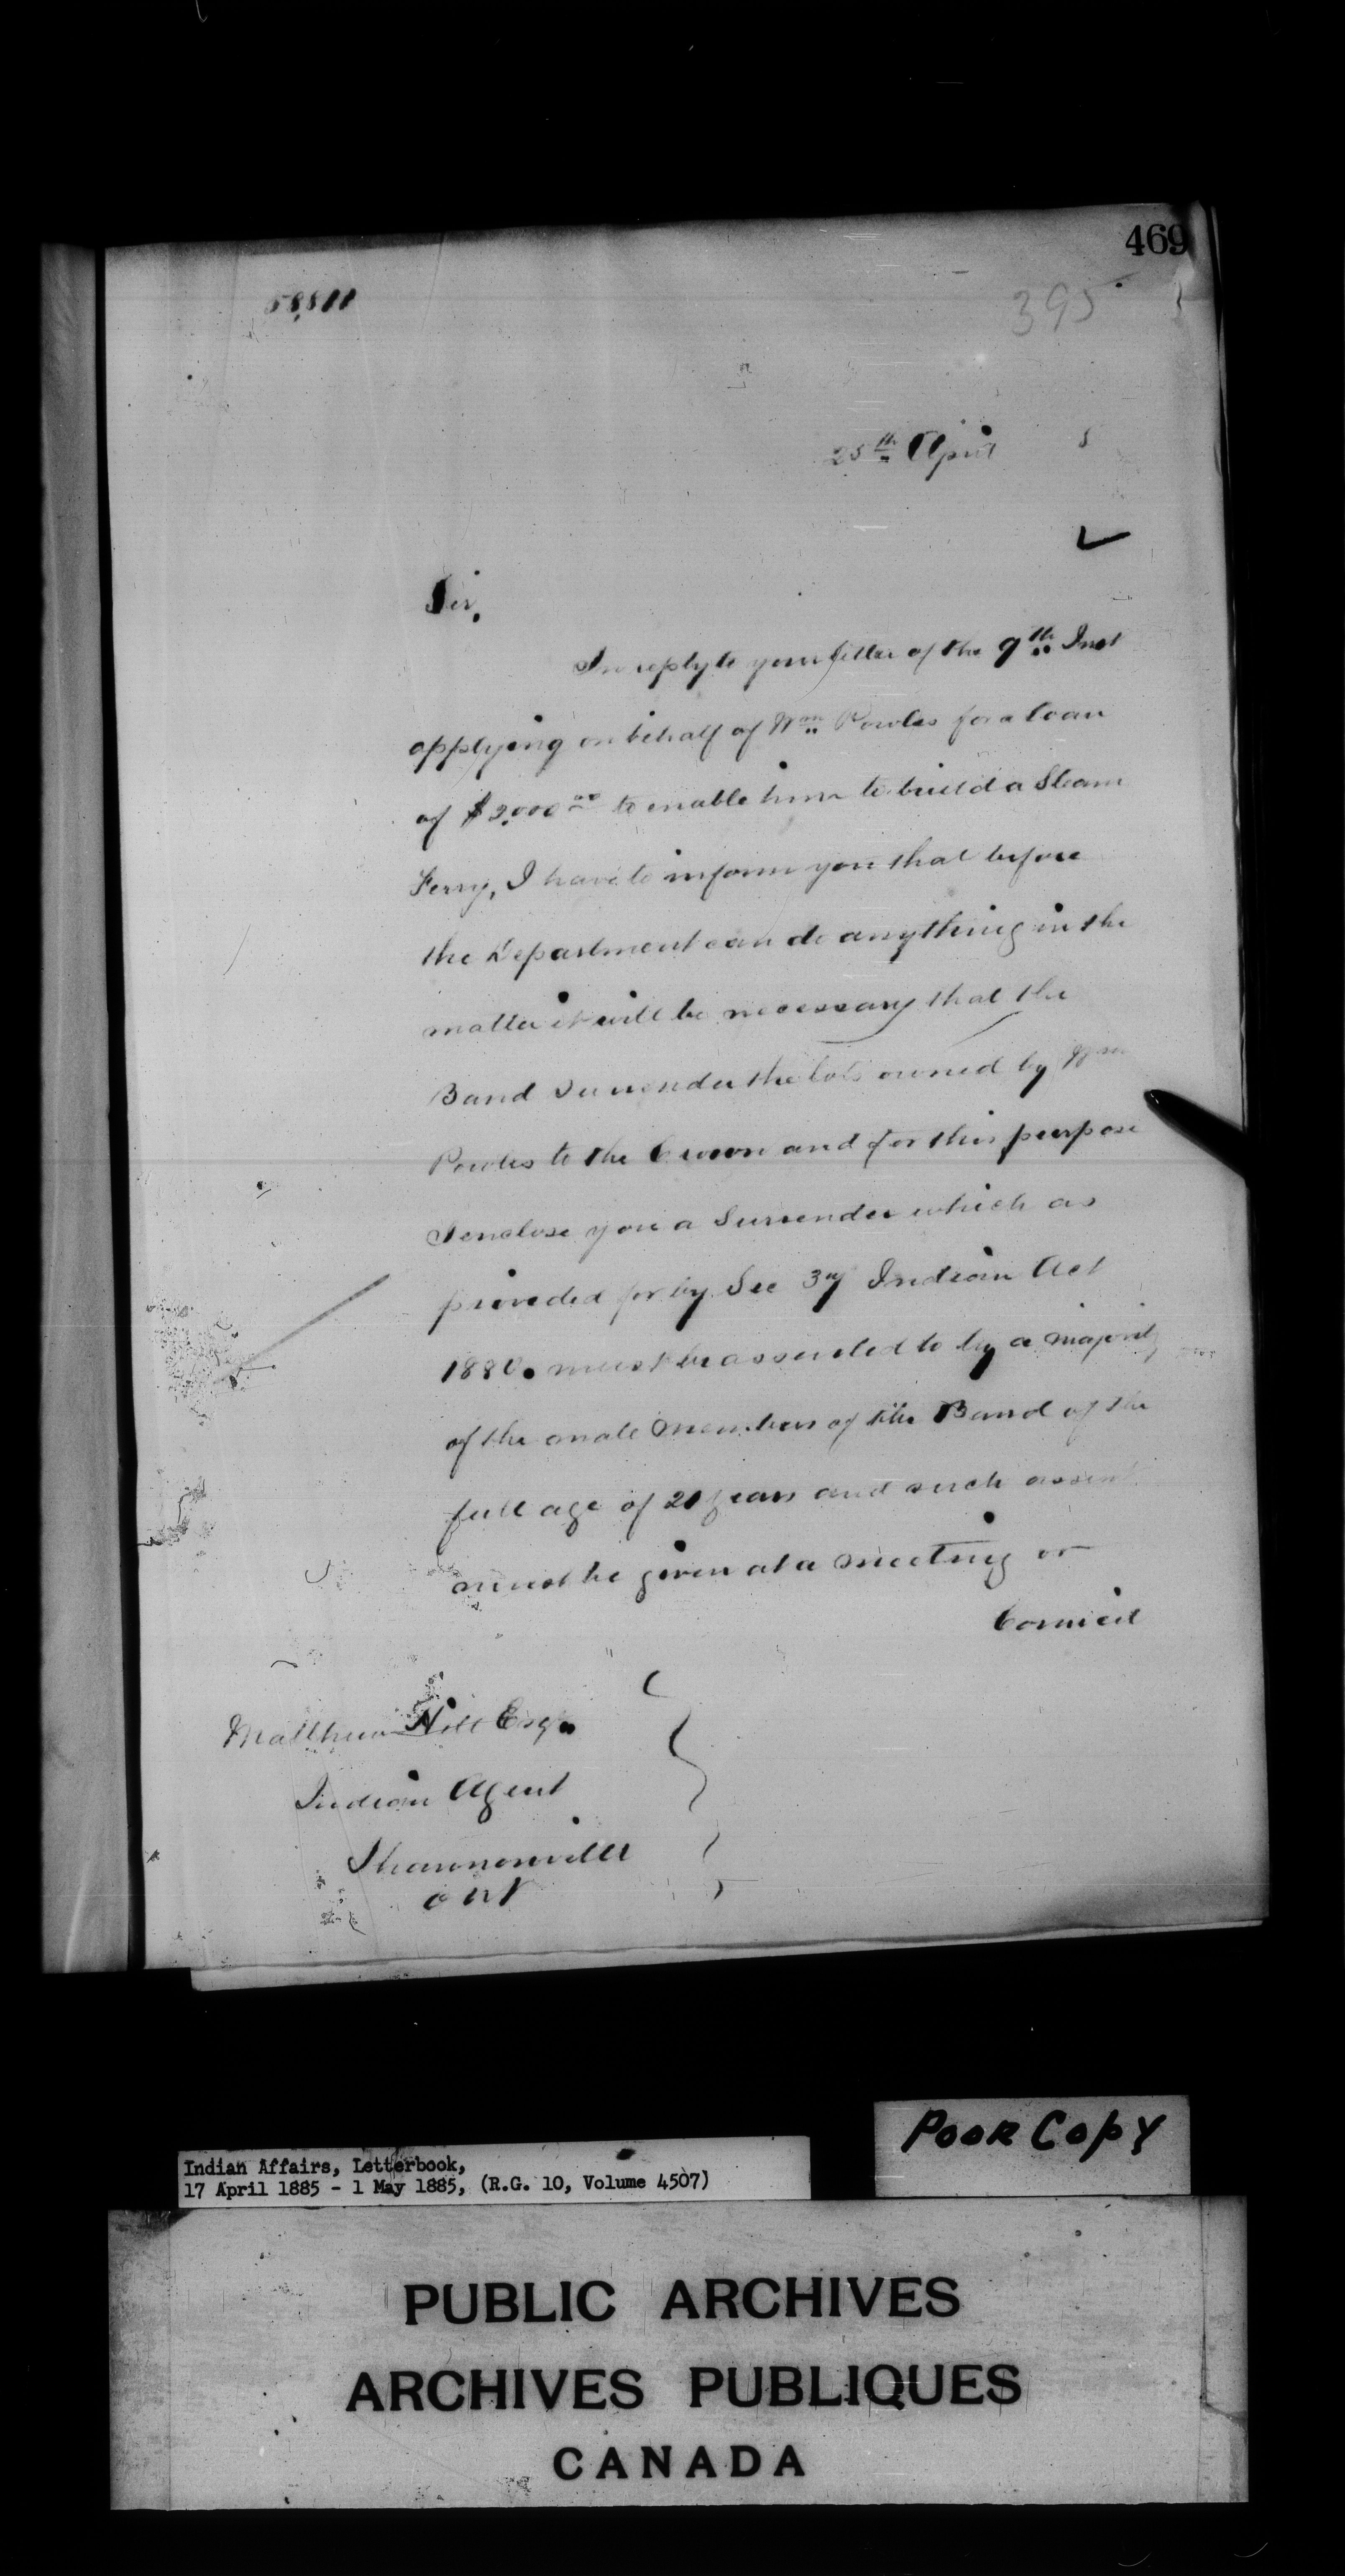 469
58,811
395
25th April 5
Sir,
In reply to your letter of the 9th Inst
applying on behalf of Wm Powles for a loan
of $2,000 00 to enable him to build a Steam
Ferry, I have to inform you that before
the Department can do anything in the
matter it will be necessary that the
Band Surrender the lots owned by Wm
Powles to the Crown and for this purpose
I enclose you a Surrender which as
provided for by Sec 37 Indian Act
1880. must be assented to by a majority
of the male members of the Band of the
full age of 21 years and such assent
must be given at a meeting or
Council
Matthew Hill Esq.
Indian Agent
Shannonville
Ont
Poor Copy
Indian Affairs, Letterbook,
17 April 1885 - 1 May 1885, (R.G. 10, Volume 4507)
PUBLIC ARCHIVES
ARCHIVES PUBLIQUES
CANADA